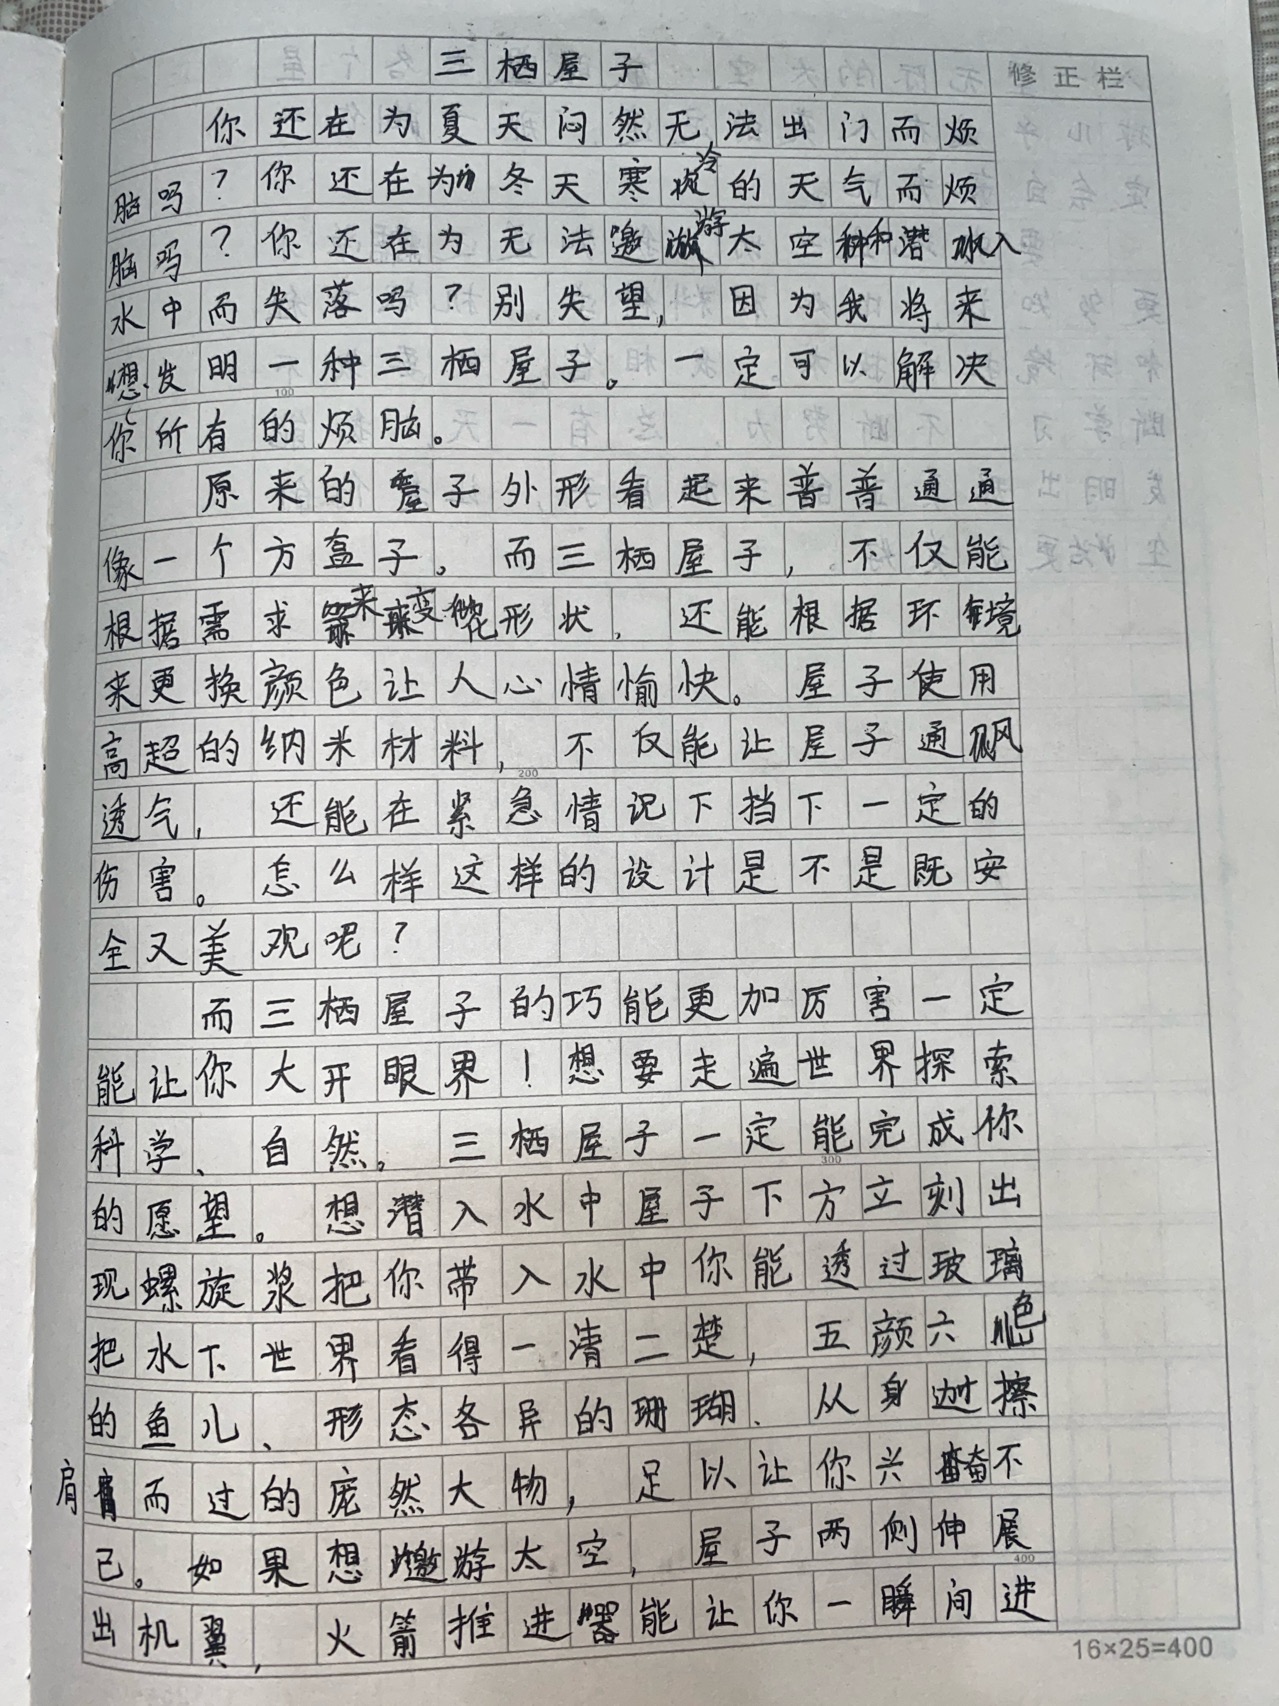 三栖屋子
修正栏
你还在为夏天闷然无法出门而烦
脑吗？你还在为冬天寒冷的天气而烦
脑吗？你还在为无法邀游太空和潜入
水中而失落吗？别失望，因为我将来
想发明一种三栖屋子。一定可以解决
你所有的烦脑。
原来的屋子外形看起来普普通通
像一个方盒子。而三栖屋子，不仅能
根据需求来变化形状，还能根据环境
来更换颜色让人心情愉快。屋子使用
高超的纳米材料，不仅能让屋子通风
透气，还能在紧急情况下挡下一定的
伤害。怎么样这样的设计是不是既安
全又美观呢？
而三栖屋子的巧能更加厉害一定
能让你大开眼界！想要走遍世界探索
科学、自然。三栖屋子一定能完成你
的愿望。想潜入水中屋子下方立刻出
现螺旋浆把你带入水中你能透过玻璃
把水下世界看得一清二楚，五颜六色
的鱼儿、形态各异的珊瑚、从身边擦
肩而过的庞然大物，足以让你兴奋不
已。如果想邀游太空，屋子两侧伸展
出机翼，火箭推进器能让你一瞬间进
100
200
300
400
16×25=400